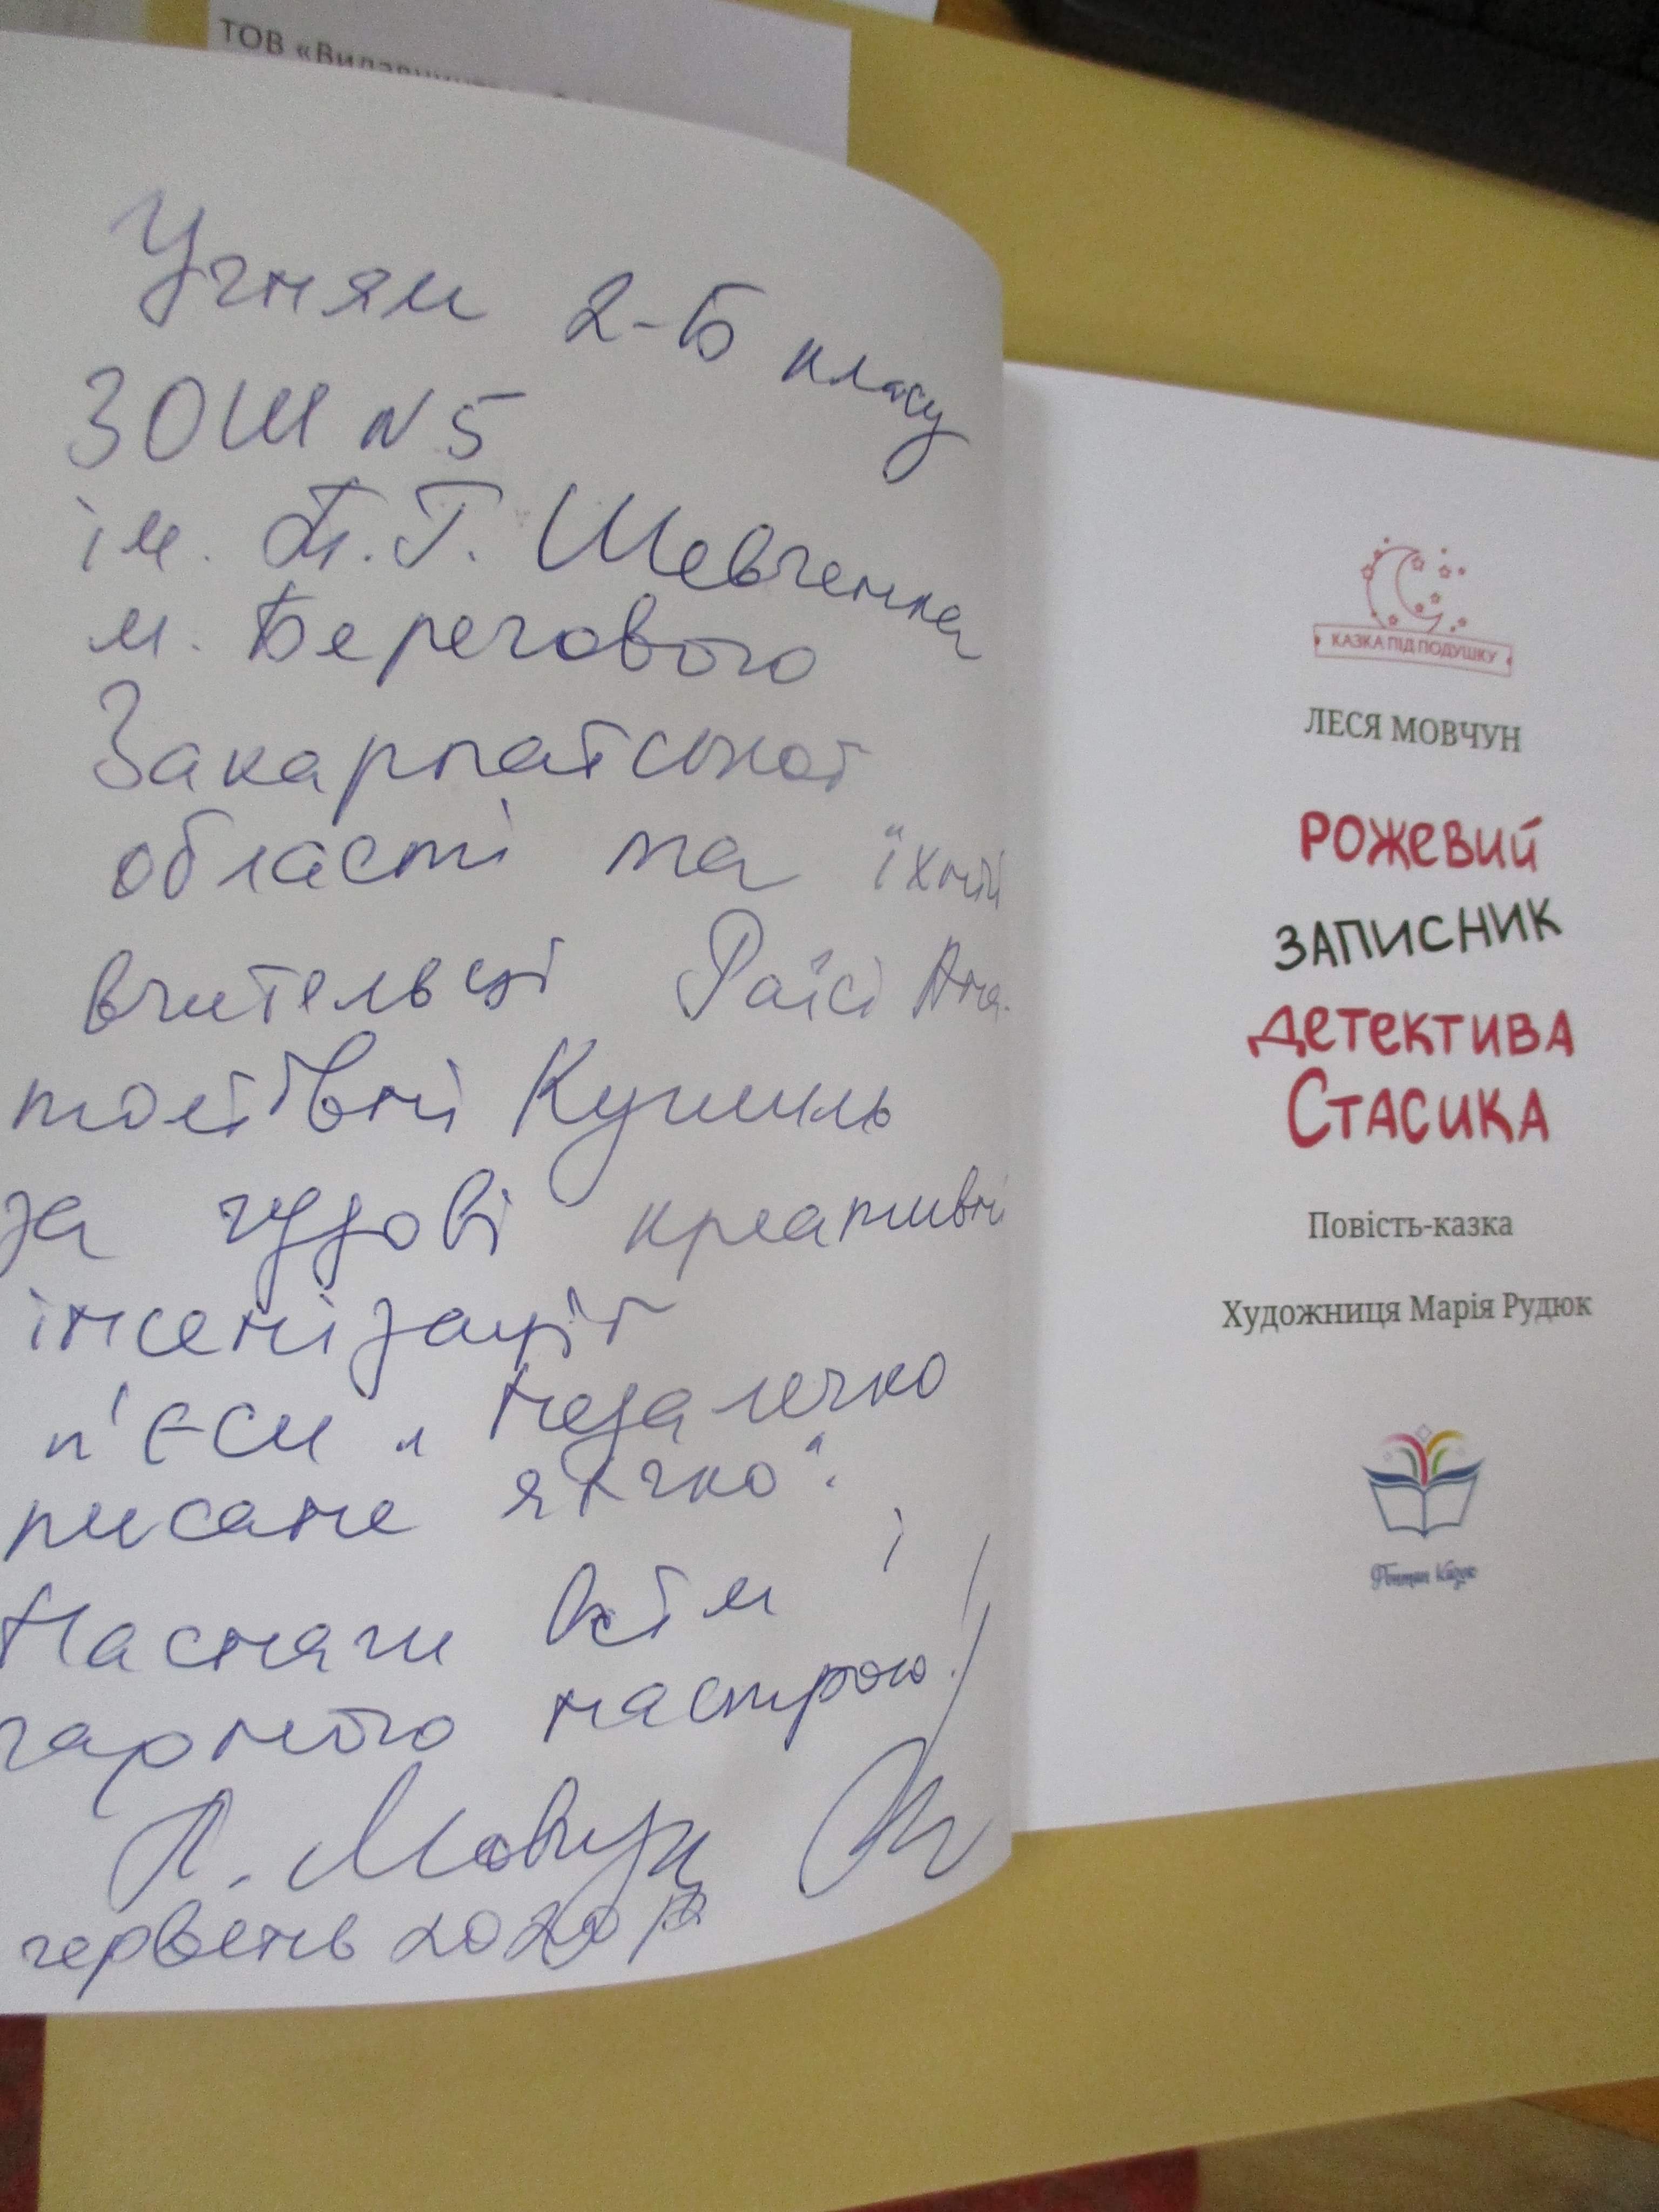 ТОВ «Видавництво
Учням 2-Б класу
ЗОШ №5
ім. Т.Г. Шевченка
м. Берегового
Закарпатської
області та їхній
вчительці Раїсі Ана-
толіївні Кушніль
за чудові креативні
інсценізації
п'єси „Незалечко
писане яєчко".
Наснаги всім і
гарного настрою!
Л. Мовчун
червень 2020 р
КАЗКА ПІД ПОДУШКУ
ЛЕСЯ МОВЧУН
РОЖЕВИЙ
ЗАПИСНИК
ДЕТЕКТИВА
СТАСИКА
Повість-казка
Художниця Марія Рудюк
Фонтан Казок